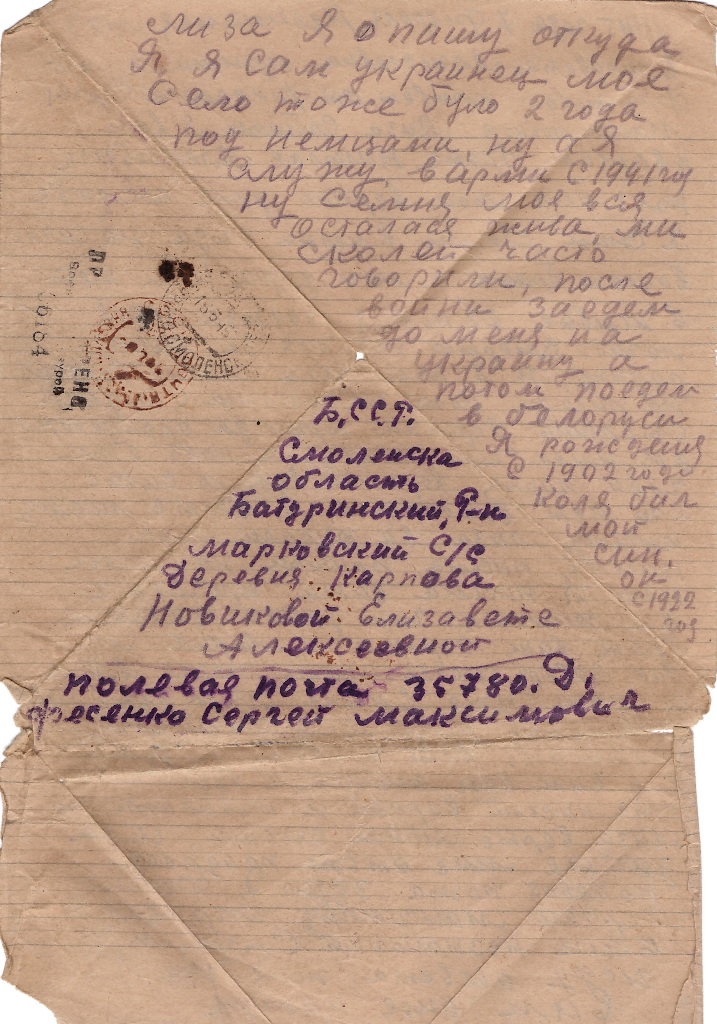 Лиза Я опишу откуда
Я Я сам украинец мое
Село тоже було 2 года
под немцами, ну а Я
Служу в арми с 1941 год
ну Семия моя вся
осталася жива, ми
сколей часто
говорили, после
войни заедем
до меня на
украину а
потом поедем
в белоруси
Я рождения
С 1902 года
Коля бил
мой
син.
он
с 1922
год
Б.С.С.Р.
Смоленска
область
Батуринский, Р-н
Марковский С/с
Деревня Карпова
Новиковой Елизавете
Алексеевной
Полевая почта 35780. Д,
фесенко Сергей Максимович
СМОЛЕНСК
06164